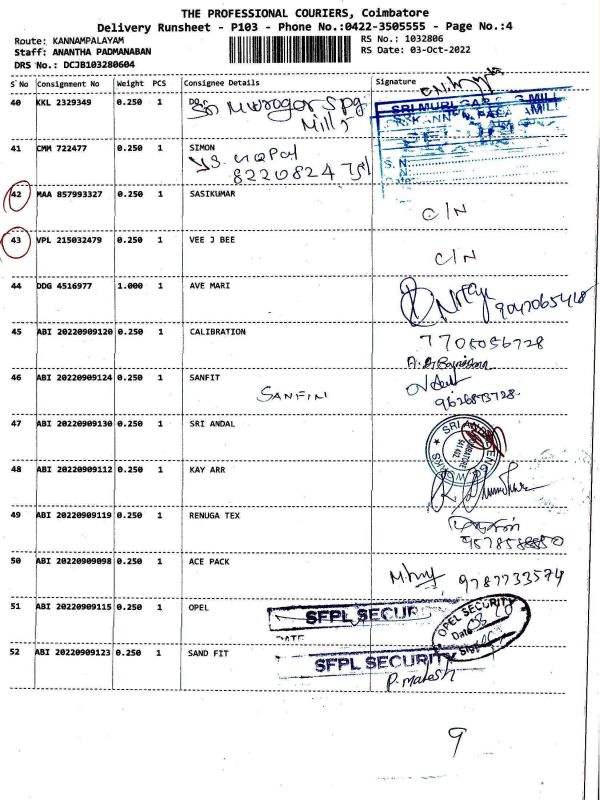 THE PROFESSIONAL COURIERS, Coimbatore
Delivery Runsheet - P103 - Phone No.:0422-3505555 - Page No.:4
Route: KANNAMPALAYAM RS No.: 1032806
Staff: ANANTHA PADMANABAN RS Date: 03-Oct-2022
DRS No.: DCJB103280604
S No Consignment No Weight PCS Consignee Details Signature
40 KKL 2329349 0.250 1 DO
Sri Murogar Spg
Mills
41 CMM 722477 0.250 1 SIMON
42 MAA 857993327 0.250 1 SASIKUMAR C/N
43 VPL 215032479 0.250 1 VEE J BEE C/N
44 DDG 4516977 1.000 1 AVE MARI
45 ABI 20220909120 0.250 1 CALIBRATION 7705056728
46 ABI 20220909124 0.250 1 SANFIT
SANFINI
47 ABI 20220909130 0.250 1 SRI ANDAL
48 ABI 20220909112 0.250 1 KAY ARR
49 ABI 20220909119 0.250 1 RENUGA TEX
50 ABI 20220909098 0.250 1 ACE PACK
9787733574
51 ABI 20220909115 0.250 1 OPEL
SFPL SECUR
OPEL SECURITY
Date
Sign
52 ABI 20220909123 0.250 1 SAND FIT
SFPL SECURITY
P. mahesh
9